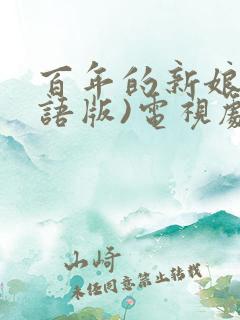 百年的新娘
語版)電視劇
山崎
未任同意禁止轉載